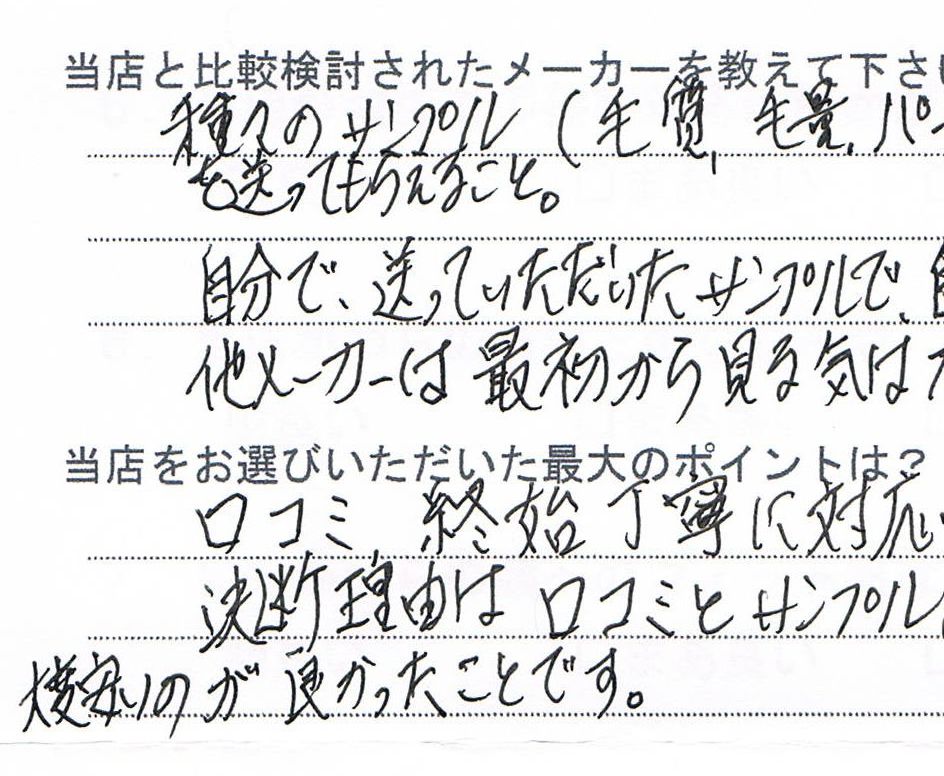 当店と比較検討されたメーカーを教えて下さ
種々のサンプル(毛質,毛量,パ
を送ってもらえること。
自分で、送っていただいたサンプルで、
他メーカーは最初から見る気は
当店をお選びいただいた最大のポイントは?
口コミ 終始丁寧に対応
決断理由は口コミとサンプル
のが良かったことです。